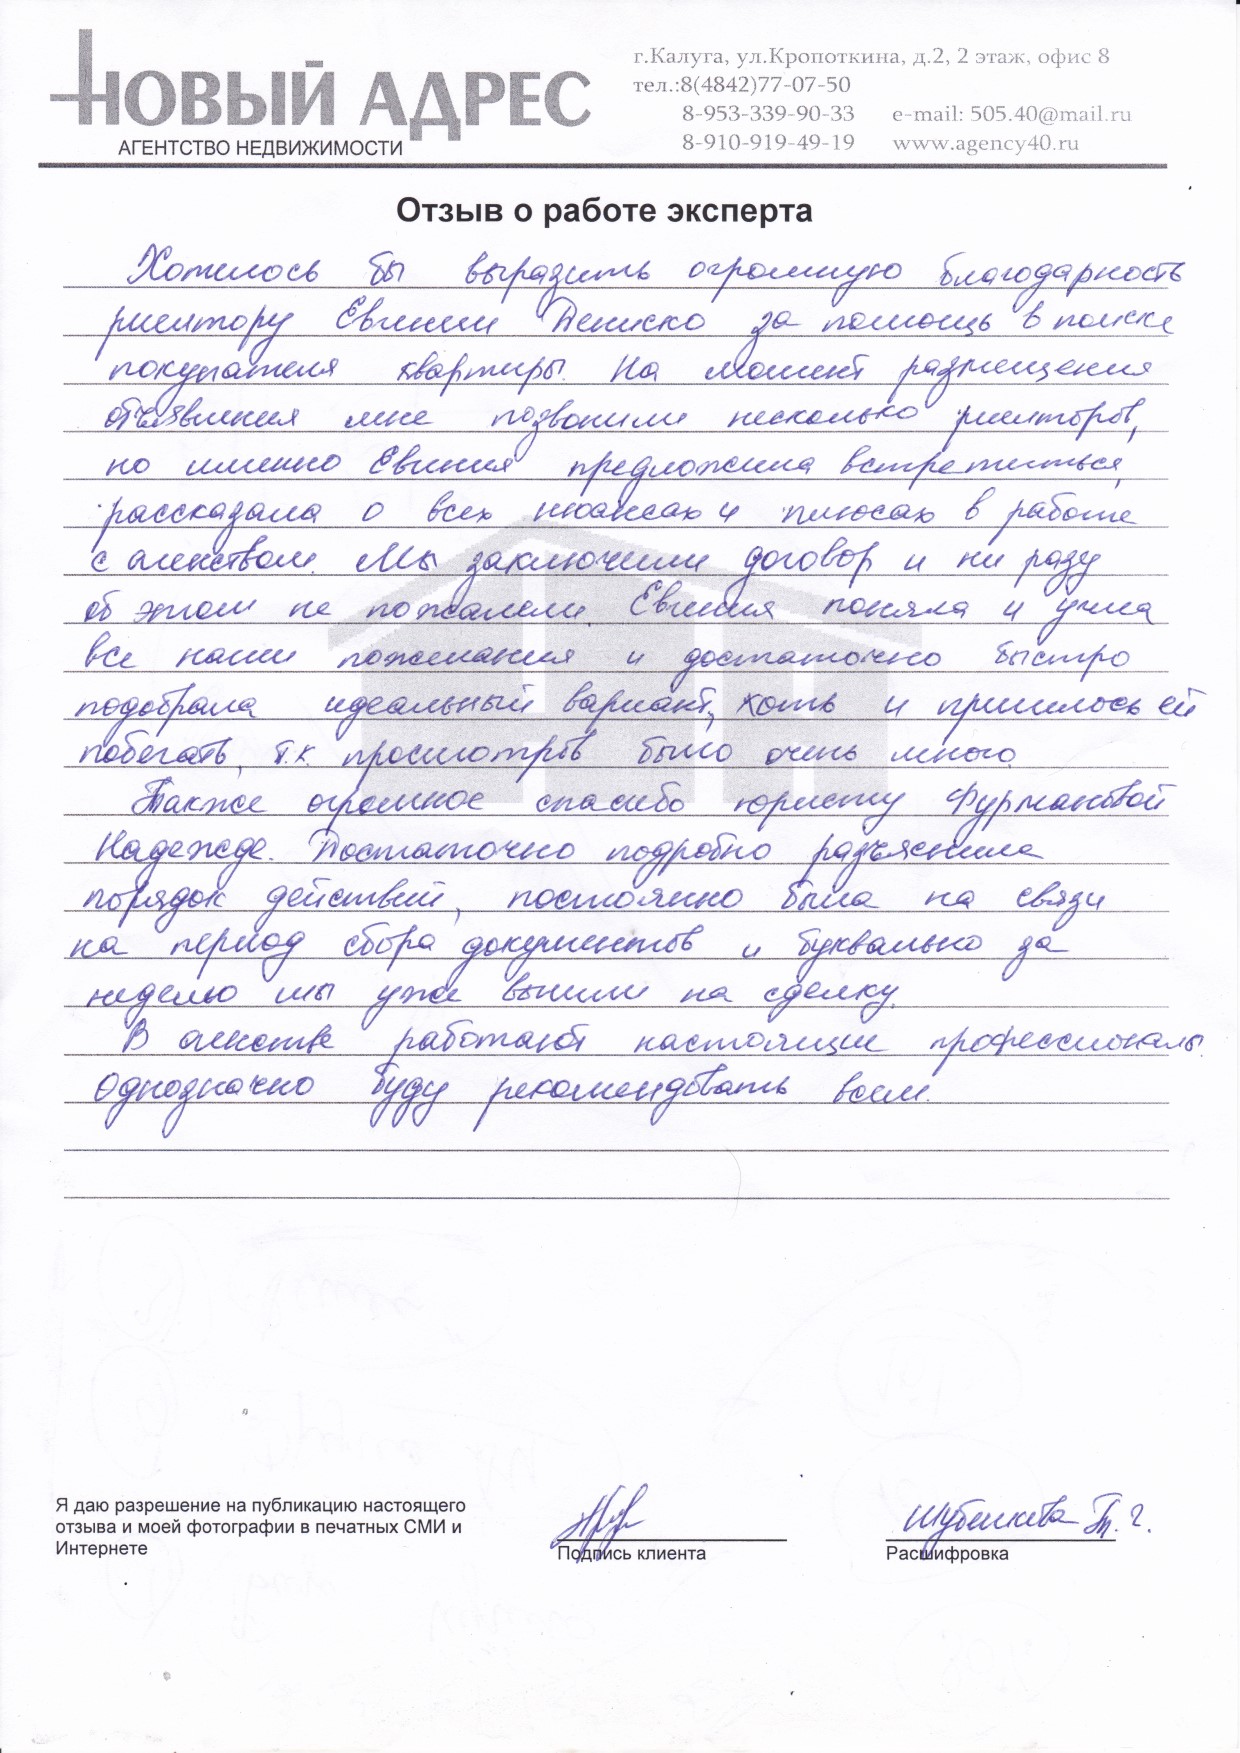 НОВЫЙ АДРЕС
АГЕНТСТВО НЕДВИЖИМОСТИ
г.Калуга, ул.Кропоткина, д.2, 2 этаж, офис 8
тел.:8(4842)77-07-50
8-953-339-90-33 e-mail: 505.40@mail.ru
8-910-919-49-19 www.agency40.ru
Отзыв о работе эксперта
Хотелось бы выразить огромную благодарность
риелтору Евгении Дениско за помощь в поиске
покупателя квартиры. На момент размещения
объявления мне позвонили несколько риелторов,
но именно Евгения предложила встретиться,
рассказала о всех нюансах и плюсах в работе
с агенством. Мы заключили договор и ни разу
об этом не пожалели. Евгения поняла и учла
все наши пожелания и достаточно быстро
подобрала идеальный вариант, хоть и пришлось ей
побегать, т.к. просмотров было очень много.
Также огромное спасибо юристу Фурмановой
Надежде. Достаточно подробно разъяснила
порядок действий, постоянно была на связи
на период сбора документов и буквально за
неделю мы уже вышли на сделку.
В агенстве работают настоящие профессионалы.
Однозначно буду рекомендовать всем.
Я даю разрешение на публикацию настоящего
отзыва и моей фотографии в печатных СМИ и
Интернете
Подпись клиента
Т. Г.
Расшифровка